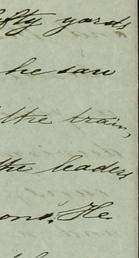 fifty yards
he saw
the train,
the leaders
ons. He